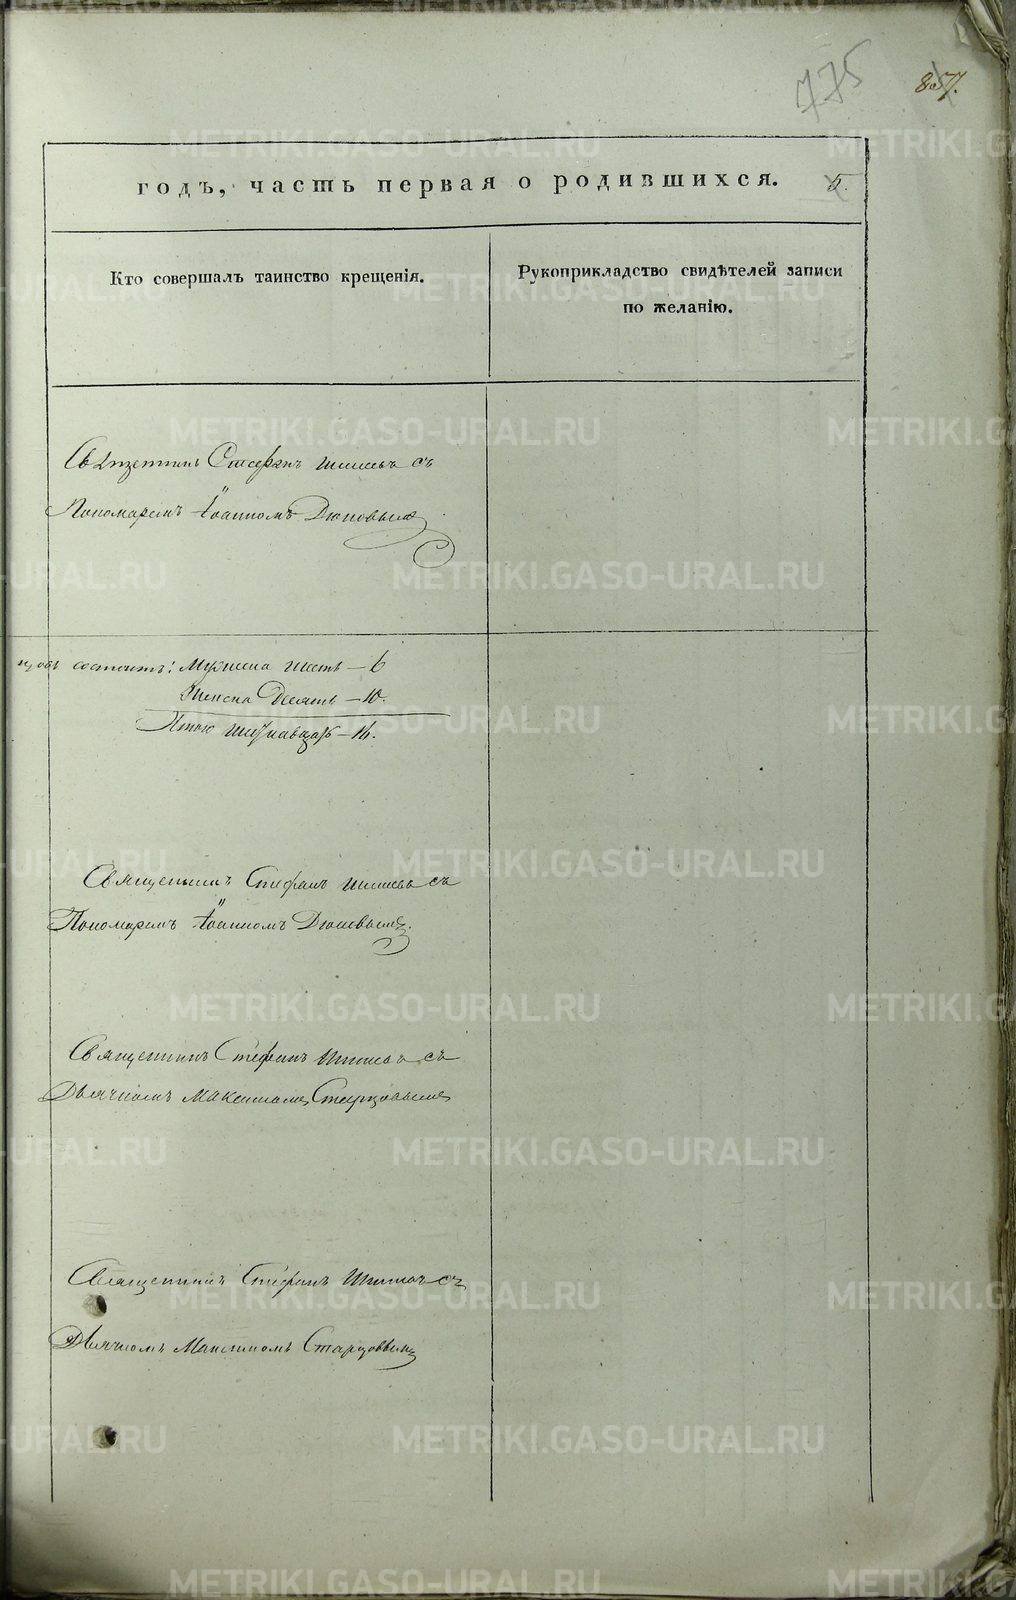 775
857.
годъ, часть первая о родившихся. 5.
Кто совершалъ таинство крещенія.
Рукоприкладство свидѣтелей записи
по желанію.
Священникъ Стефанъ съ
Пономаремъ Іоанномъ
состоитъ: Мужеска шесть – 6
Женска Десять – 10.
Итого шестнадцать – 16.
Священникъ Стефанъ съ
Пономаремъ Іоанномъ
Священникъ Стефанъ съ
Дьячкомъ Максимомъ Старцовымъ
Священникъ Стефанъ съ
Дьячкомъ Максимомъ Старцовымъ
METRIKI.GASO-URAL.RU